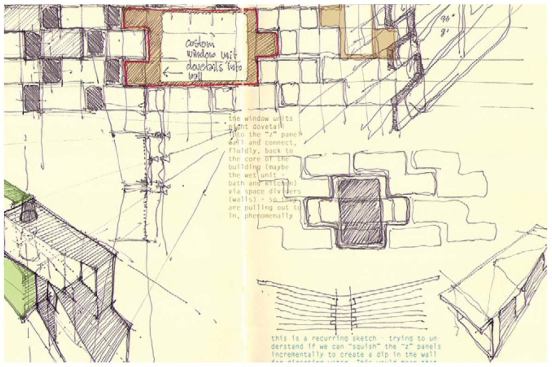 custom
window unit
dovetails into
wall
90°
8'
the window units
might dovetail
into the "z" panel
wall and connect,
fluidly, back to
the core of the
building (maybe
the wet unit -
bath and kitchen)
via space dividers
(walls) - so they
are pulling out to
in, phenomenally
this is a recurring sketch trying to un-
derstand if we can "squish" the "z" panels
incrementally to create a dip in the wall